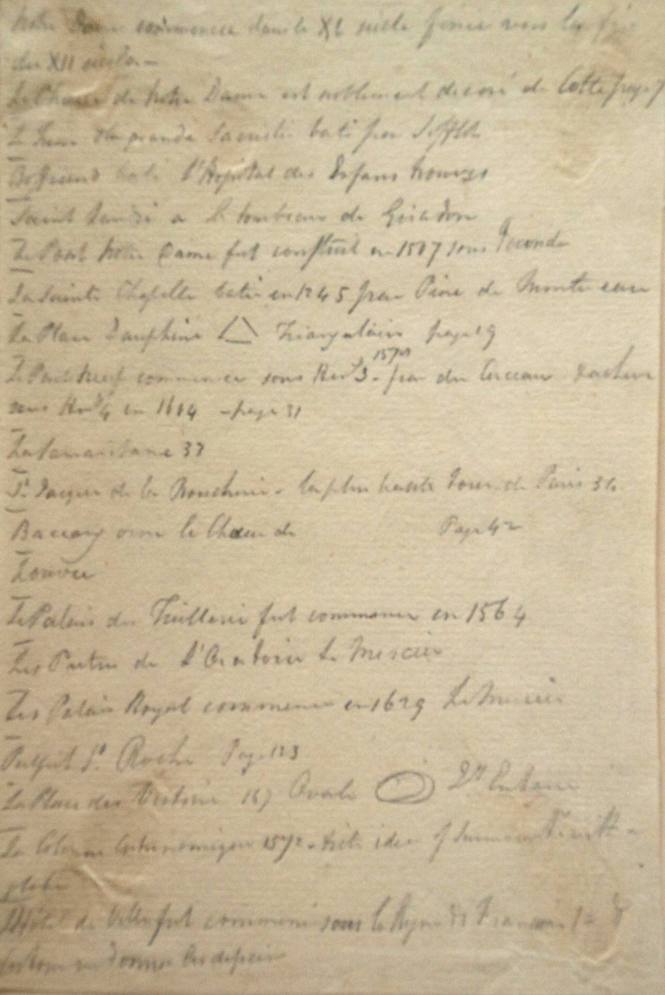 Notre Dame commencee dans le XI siecle finee vers la fin
du XII siecle
Le Choeur de Notre Dame est noblement decoré de Cotte page 7
Le grande Sacristie bati par Soufflot
Boffrand bati L'Hopital des Enfans trouves
Saint Landri a le tombeau de Girardon
Le Pont Notre Dame fut construit en 1507 sous Joconde
La Sainte Chapelle batie en 1245 par Piere de Montereau
La Place Dauphine Triangulaire page 19
Le Pont Neuf commence sous Henry 3 - 1578 par du Cerceau
sous Henry 4 en 1604 - page 31
La Samaritaine 33
St Jacques de la Boucherie - la plus haute Tour de Paris 36
Baccary orne le Choeur de Page 42
Louvre
Le Palais des Tuillerie fut commence en 1564
Les Pretres de L'Oratoire Le Mercier
Les Palais Royal commence en 1629 Le Mercier
Pulpit St Roche Page 123
La Place des Victoire Ovale
La Colonne 1572
globe
L'Hotel de Ville fut commencé sous le Regne de Francois 1
donna les dessein